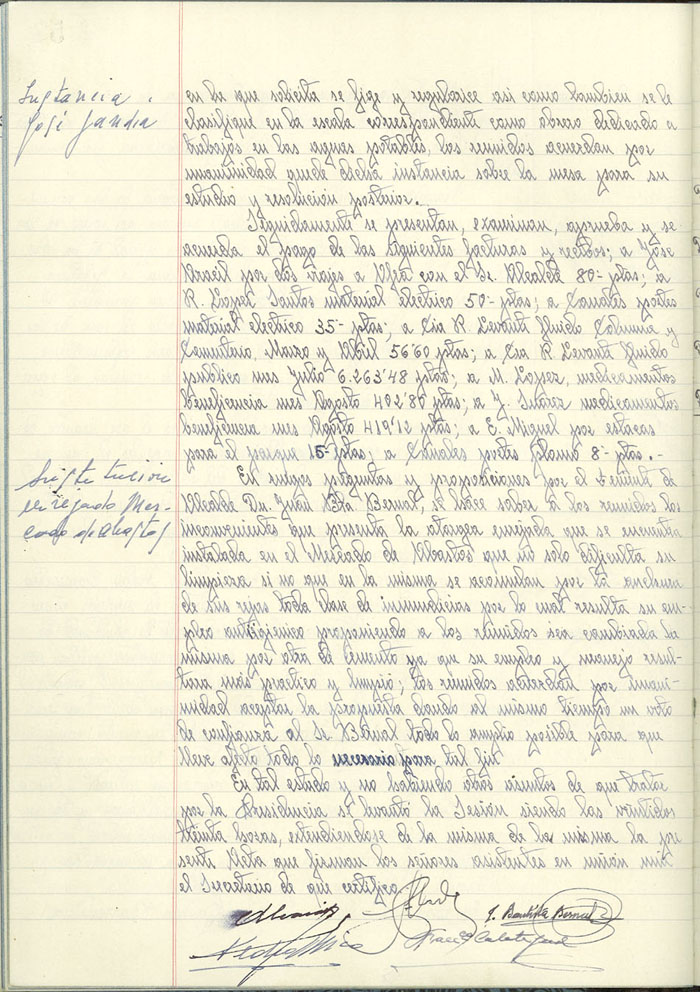 Instancia.
José Gandia
en la que solicita se fige y regularice asi como tambien se le
clasifique en la escala correspondiente como obrero dedicado a
trabajos en las aguas potables, los reunidos acuerdan por
unanimidad quede dicha instancia sobre la mesa para su
estudio y resolucion postuior.
Seguidamente se presentan, examinan, aprueba y se
acuerda el pago de las siguientes facturas y recibos; a José
por dos viajes a con el Sr. Alcalde 80- ptas; a
R. Lopez Santos material electrico 50- ptas; a Canales poetes
material electrico 35- ptas; a Cia R. Levante fluido Columna y
Cementario, Marzo y Abril 56'60 ptas; a Cia R Levante fluido
publico mes Julio 6.263'48 ptas; a M. Lopez, medicamentos
beneficencia mes Agosto 402'80 ptas; a J. Suarez medicamentos
beneficencia mes Agosto 419'12 ptas; a E. Miquel por estacas
para el parque 15- ptas; a Canales poetes plomo 8- ptas.-
Mer-
cado de abastos
En ruegos preguntas y proposiciones por el Teniente de
Alcalde Dn. Juan Bta Bernat, se hace saber a los reunidos los
inconvenientes que presenta la enrejada que se encuentra
instalada en el Mercado de Abastos que no solo dificulta su
limpieza si no que en la misma se acumulan por la anchura
de sus rejas toda clase de inmundicias por lo cual resulta su em-
pleo antigienico proponiendo a los reunidos sea cambiada la
misma por otra de cemento ya que su empleo y manejo resul-
tara más practico y limpio; los reunidos acuerdan por unani-
midad aceptar la propuesta dando al mismo tiempo un voto
de confianza al Sr Bernat todo lo amplio posible para que
lleve afecto todo lo necesario para tal fin.
En tal estado y no habiendo otros asuntos de que tratar
por la Presidencia se levantó la Sesión siendo las veintidos
treinta horas, estendiendose de la misma de la misma la pre
sente Acta que firman los señores asistentes en unión mia
el Secretario de que certifico.
J. Bautista Bernat